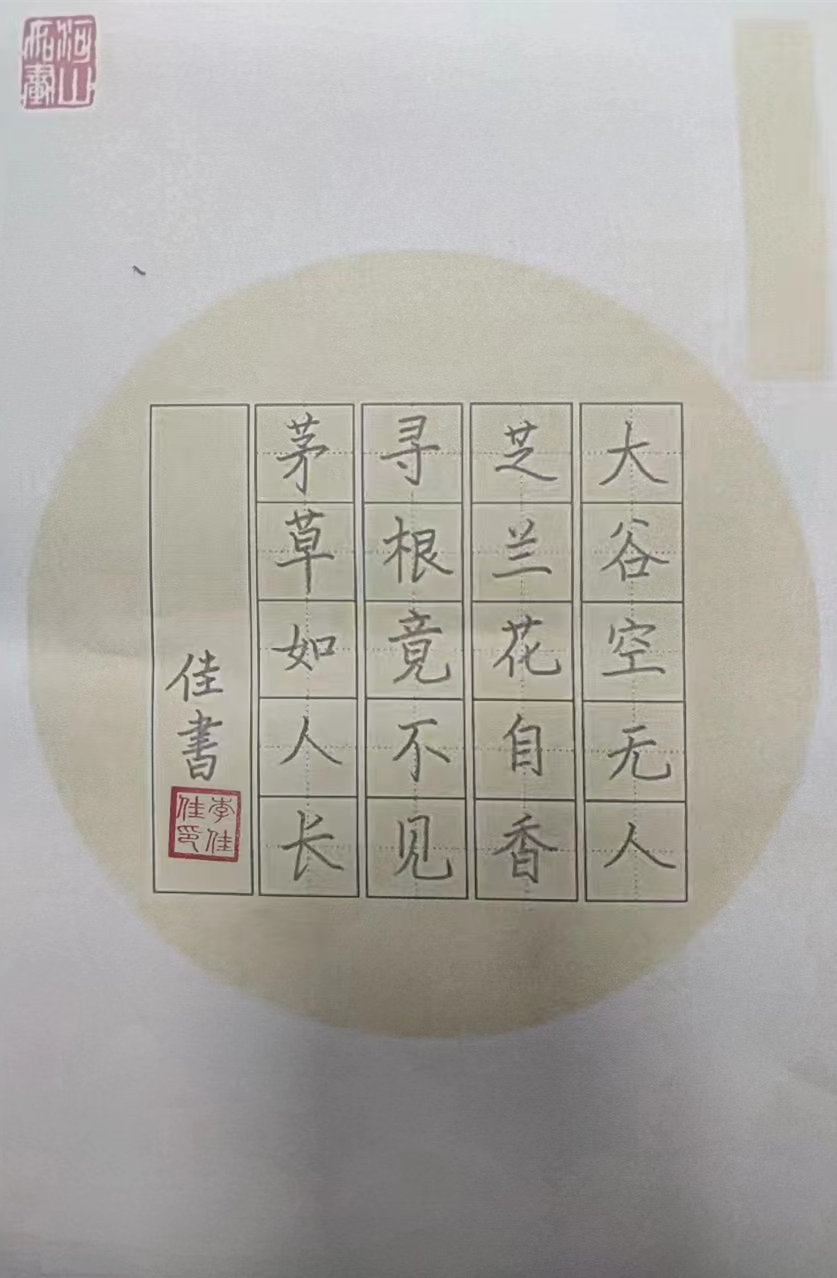 大谷空无人
芝兰花自香
寻根竟不见
茅草如人长
佳書
李佳佳印
河山如畫